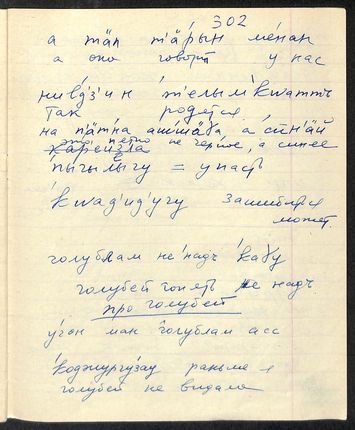 302
а тäп т'ǟрын мéнан
а она говорит у нас
нивдз'ин т'елым'кwаттъ
так родется
на пǟтна ашшǟба, а син'ǟй
это пятно не черное, а синее
пыгылы́гу = упасть
'кwадидугу зашибется
может
голублам не'надъ 'кабу
голубей гонять не надъ
про голубей
ýгон ман голублам асс
'коджургузау раньше я
голубей не видала